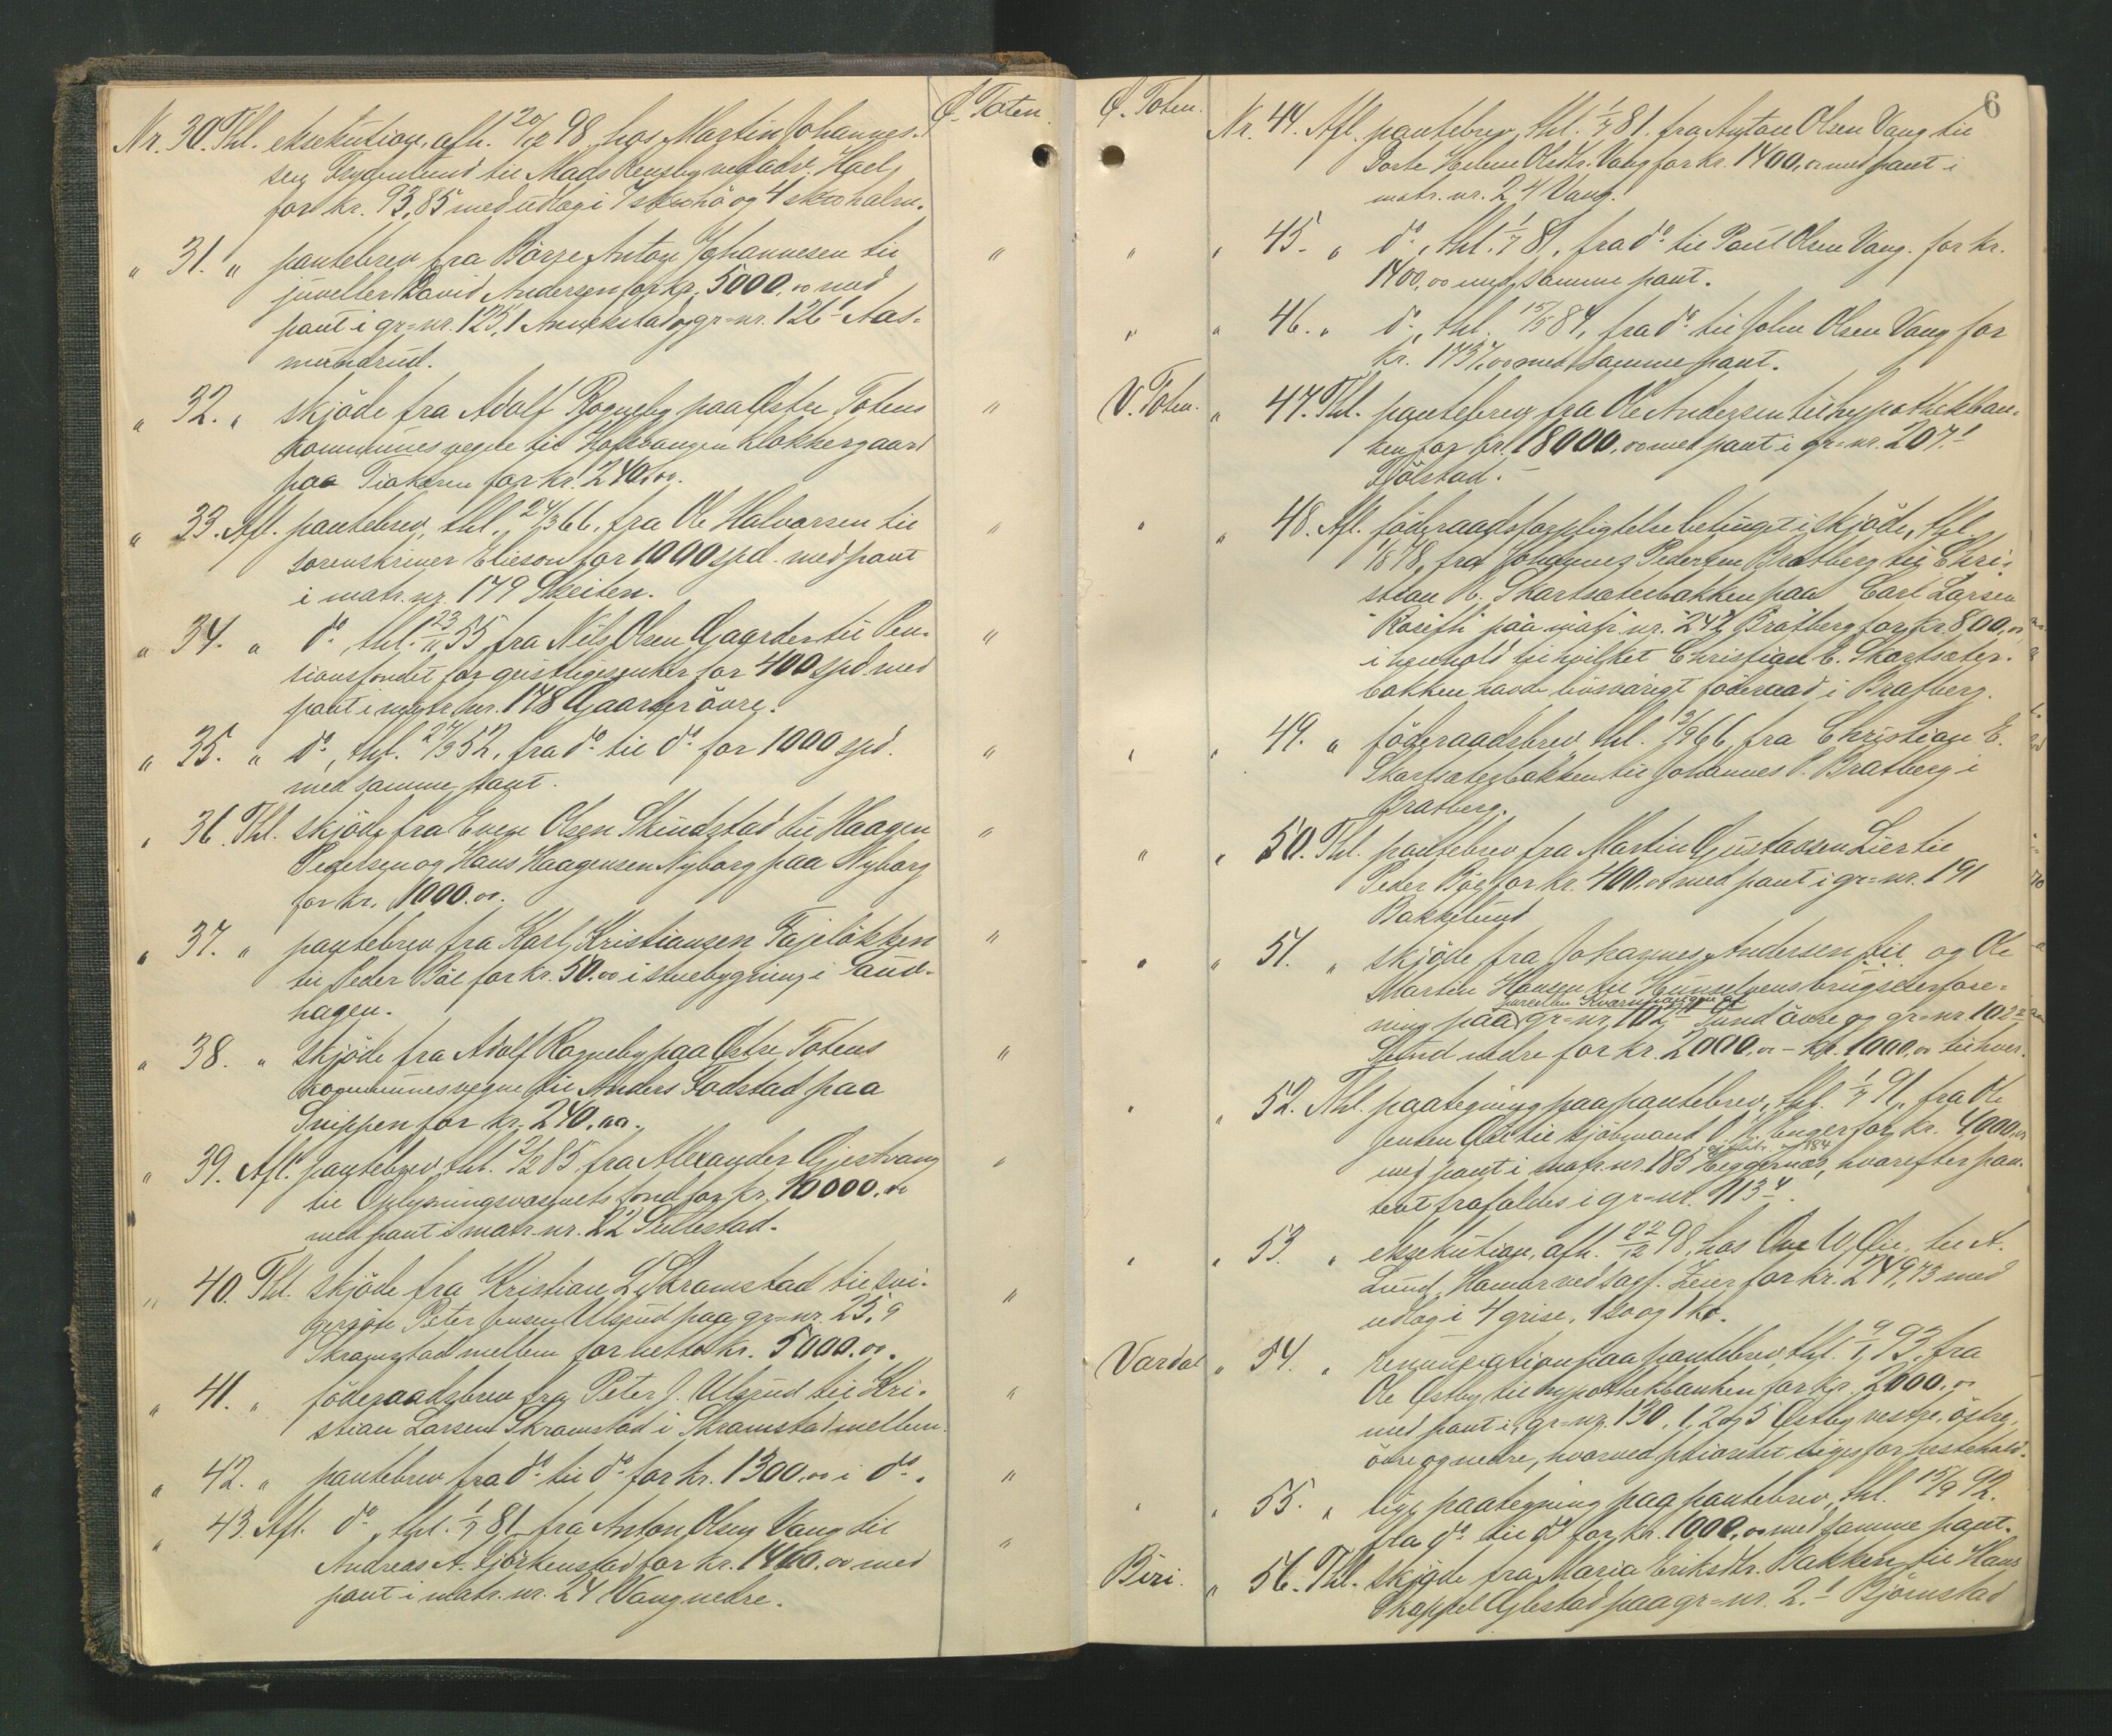 Ø. Toten.
Nr. 30. Thl. eksekution, afh. 20/12 98, hos Martin Johannes-
sen til Mads Rensby ved adv. Hoel
for kr. 93,85 med udlæg i 7 skhö og 4 halm.
" 31. " pantebrev fra Børre Anton Johannesen til "
juveller David Andersen for kr. 5000,00 med
pant i gr=nr. 125,1 og gr=nr. 126,1 Aas-
mundrud.
" 32. " skjöde fra Adolf Rogneby paa Østre Totens "
kommunes vegne til Hofsvangen Klokkergaard
paa for kr. 240,00.
" 33. Afl. pantebrev, thl. 24/3 66, fra Ole Halvorsen til "
sorenskriver Elieson for 1000 spd. med pant
i matr. nr. 179 Skeiten.
" 34. " do, thl. 23/11 55, fra Nils Olsen Gaarder til Pen- "
sionsfondet for geistlige enker for 400 spd. med
pant i matr. nr. 178 Gaarder övre.
" 35. " do, thl. 27/9 52, fra do til do for 1000 spd. "
med samme pant.
" 36. Thl. skjöde fra Even Olsen Skindstad til Haagen "
Pedersen og Hans Haagensen Nyborg paa Nyborg
for kr. 1000.00.
" 37. " pantebrev fra Karl Kristiansen Fajelökken "
til Peder Böe for kr. 50.00 i stuebygning i Sand-
hagen.
" 38. " skjöde fra Adolf Rogneby paa Østre Totens "
kommunes vegne til Anders Fodstad paa
Snippen for kr. 240,00.
" 39. Afl. pantebrev, thl. 2/2 85, fra Alexander Gjestvang "
til Oplysningsvæsenets fond for kr. 10000,00
med pant i matr. nr. 22
" 40. Thl. skjöde fra Kristian L. Skramstad til svi- "
gersön Peter Jensen Ulsrud paa gr=nr. 25,9
Skramstad mellem for netto kr. 5000.00.
" 41. " föderaadsbrev fra Peter J. Ulsrud til Kri- "
stian Larsen Skramstad i Skramstad mellem.
" 42. " pantebrev fra do til do for kr. 1300,00 i do. "
" 43. Afl. do, thl. 1/7 81, fra Anton Olsen Vang til "
Andreas A. Björkenstad for kr. 1400.00 med
pant i matr. nr. 24 Vang nedre.
6
Ø. Toten. Nr. 44. Afl. pantebrev, thl. 1/7 81, fra Anton Olsen Vang til
Dorte Helene Olsdtr. Vang for kr. 1400,00 med pant i
matr. nr. 24 Vang.
" " 45. " do, thl. 1/7 81, fra do til Paul Olsen Vang for kr.
1400,00 med samme pant.
" " 46. " do, thl. 15/5 84, fra do til John Olsen Vang for
kr. 1737,00 med samme pant.
V. Toten. " 47. Thl. pantebrev fra Ole Andersen til hypothekban-
ken for kr. 18000,00 med pant i gr=nr. 207,1
Fjölstad.
" " 48. Afl. föderaadsforpligtelse betinget i skjöde, thl.
1878, fra Johannes Pedersen Bratberg til Chri-
stian E. Skartsæterbakken paa Carl Larsen
paa matr. nr. 242 Bratberg for kr. 800,00,
i henhold til hvilket Christian E. Skartsæter-
bakken havde livsvarigt föderaad i Bratberg.
" " 49. " föderaadsbrev, thl. 66, fra Christian E.
Skartsæterbakken til Johannes P. Bratberg i
Bratberg.
" " 50. Thl. pantebrev fra Martin Gustavsen Lier til
Peder Böe for kr. 400,00 med pant i gr=nr. 191
Bakkelund
" " 51. " skjöde fra Johannes Andersen til og Ole
Martin Hansen til Hunselvens brugseierfore-
ning paa gr=nr. 102,1 Sund övre og gr=nr. 102,2
Sund nedre for kr. 2000,00 - kr. 1000,00 til hver.
" " 52. Thl. paategning paa pantebrev, thl. 1/7 91, fra Ole
Jensen til kjöbmand for kr. 4000,00
med pant i matr. nr. 185 Heggernæs, hvorefter pan-
tet frafaldes i gr=nr. 113,4.
" " 53. " eksekution, afh. 22/12 98, hos Ole til A.
Lund, Hamar ved sagf. Zeier for kr. 249,73 med
udlæg i 4 grise, 1 so og 1 ko.
Vardal " 54. " renunciation paa pantebrev, thl. 9/1 93, fra
Ole Østby til hypothekbanken for kr. 2000,00
med pant i gr=nr. 130, 1, 2 og 5 Østby vestre, östre,
övre og nedre, hvorved prioritet viges for
" " 55. " lign. paategning paa pantebrev, thl. 15/9 92,
fra do til do for kr. 1000,00 med samme pant.
Biri. " 56. Thl. skjöde fra Maria Eriksdtr. Bakken til Hans
paa gr=nr. 2,1 Björnstad